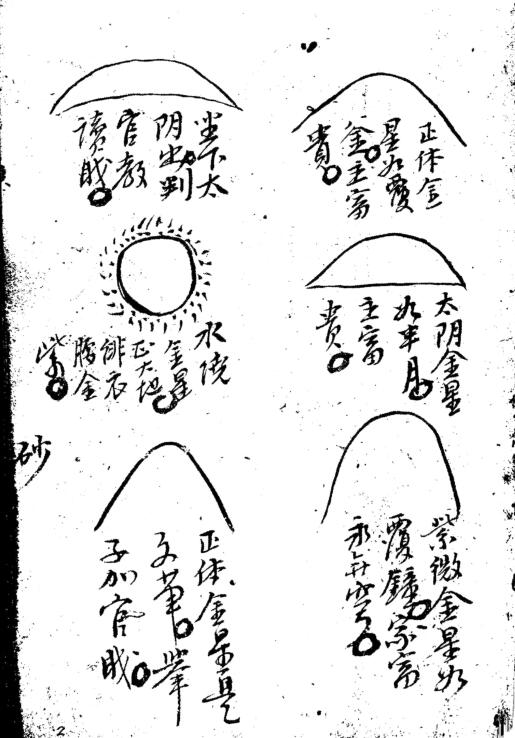 正体金
星如覆
釜主富
贵
太阴金星
如半月
主富
贵
紫微金星如
覆鐘家富
永无穷
坐下太
阴出判
官教
读职
水绕
金星
正大地
绯衣
腰金
紫
正体金星是
文笔举
子加官职
砂
2